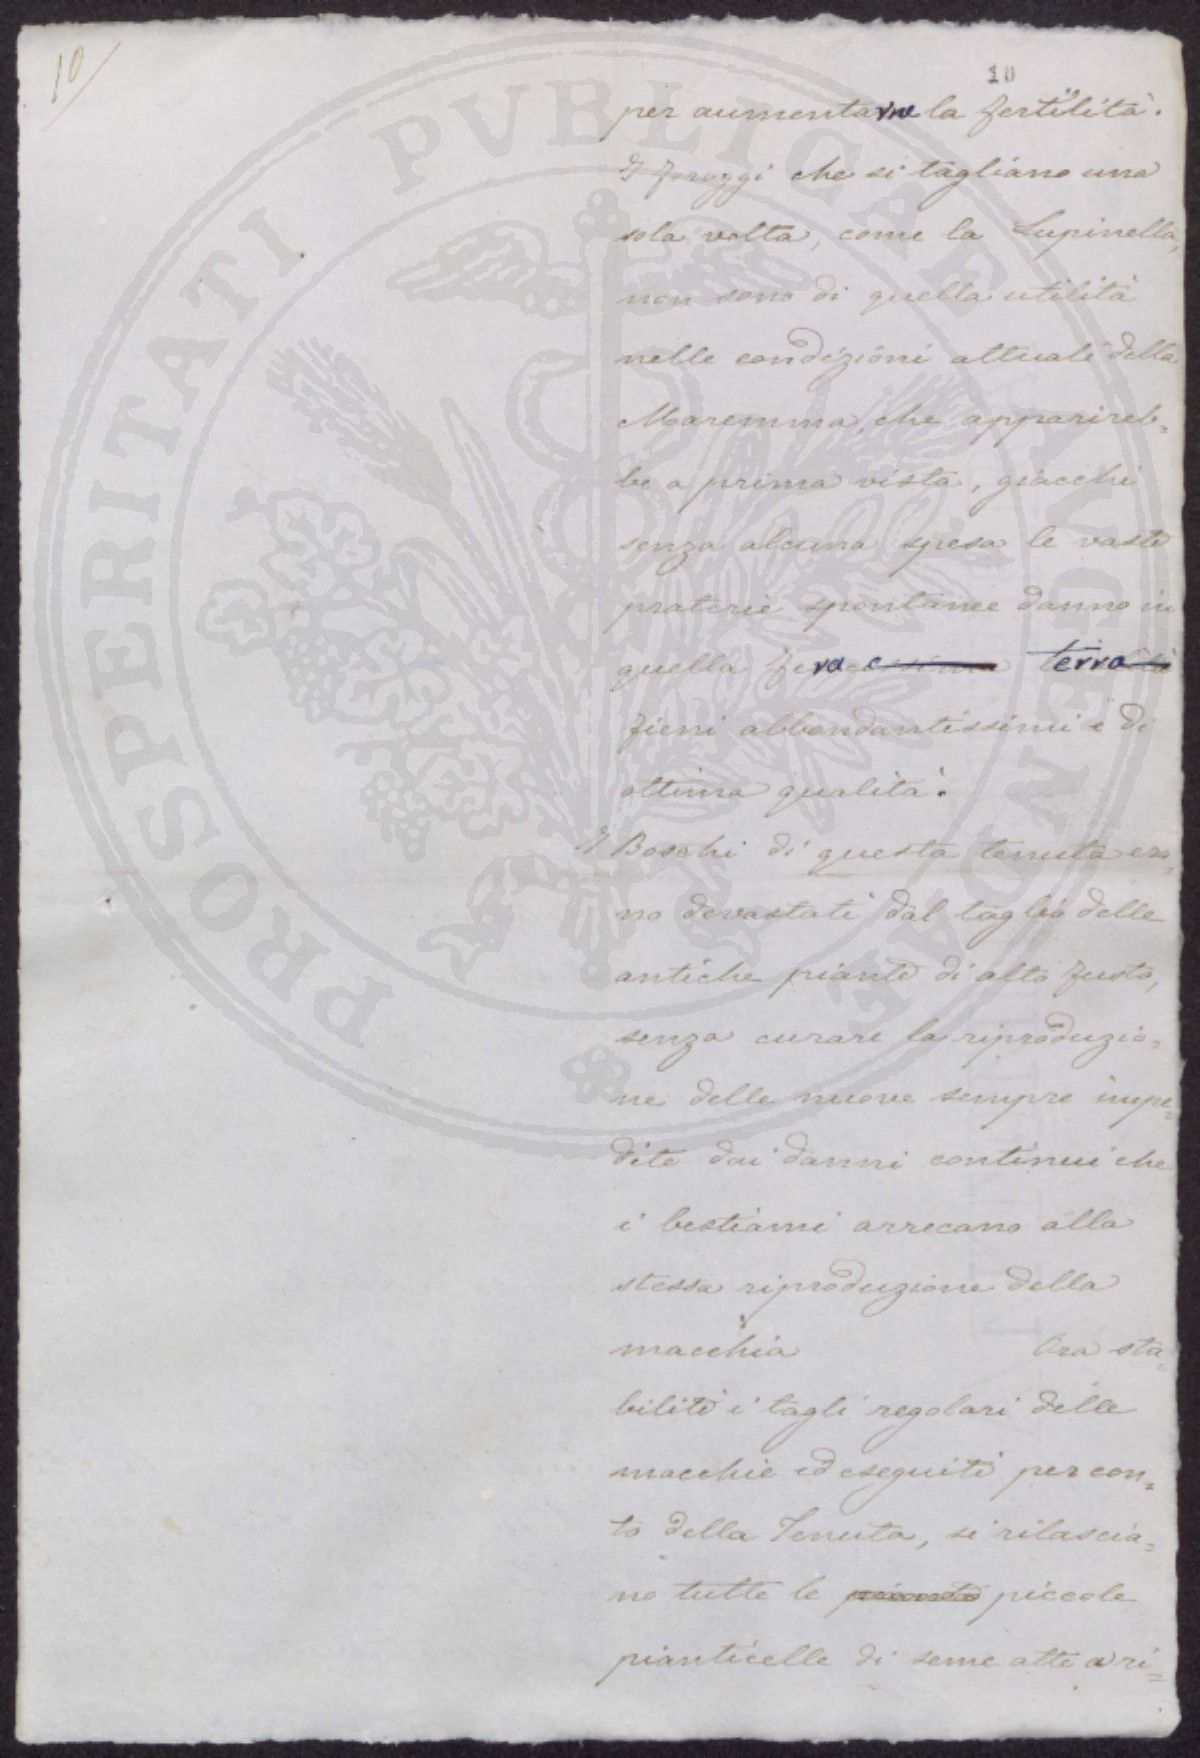 10
10
per aumentarne la fertilità.
I foraggi che si tagliano una
sola volta, come la Lupinella,
non sono di quella utilità
nelle condizioni attuali della
Maremma, che apparireb=
be a prima vista, giacchè
senza alcuna spesa le vaste
praterie spontanee danno in
quella ferace terra
fieni abbondantissimi e di
ottima qualità.
I Boschi di questa tenuta era=
no devastati dal taglio delle
antiche piante di alto fusto,
senza curare la riproduzio=
ne delle nuove sempre impe=
dite dai danni continui che
i bestiami arrecano alla
stessa riproduzione della
macchia Ora sta=
biliti i tagli regolari delle
macchie ed eseguiti per con=
to della Tenuta, si rilascia=
no tutte le piccole
pianticelle di seme atte a ri=
PROSPERITATI PVBLICAE AVGENDAE